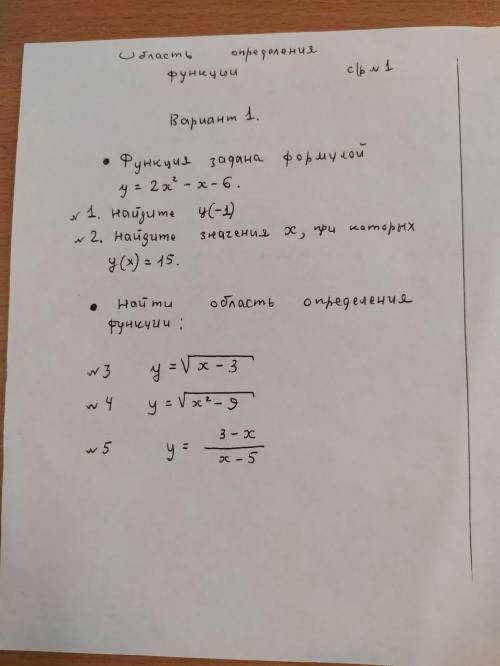 Область определения
функции с/р №1
Вариант 1.
• Функция задана формулой
y = 2x² - x - 6.
№ 1. Найдите y(-1)
№ 2. Найдите значения x, при которых
y(x) = 15.
• Найти область определения
функции:
№3 y = √(x - 3)
№4 y = √(x² - 9)
№5 y = (3 - x)/(x - 5)